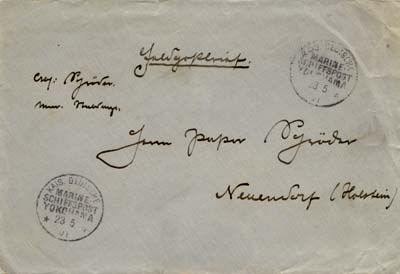 Feldpostbrief.
KAIS. DEUTSCHE
MARINE-
SCHIFFSPOST
YOKOHAMA
23 5
01
Schröder.
Herrn Pastor Schröder
Neuendorf (Holstein)
KAIS. DEUTSCHE
MARINE-
SCHIFFSPOST
YOKOHAMA
* 23 5 *
01